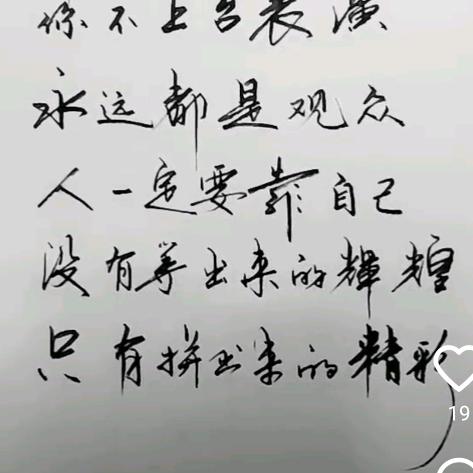 你不上台表演
永远都是观众
人一定要靠自己
没有等出来的辉煌
只有拼出来的精彩
19